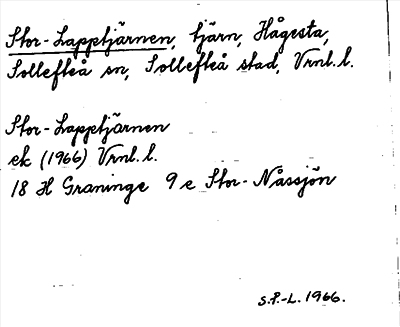 Stor-Lapptjärnen, tjärn, Hågesta,
Sollefteå sn, Sollefteå stad, Vrnl. l.
Stor-Lapptjärnen
ek (1966) Vrnl. l.
18 H Graninge 9 e Stor-Nässjön
S.P.-L. 1966.